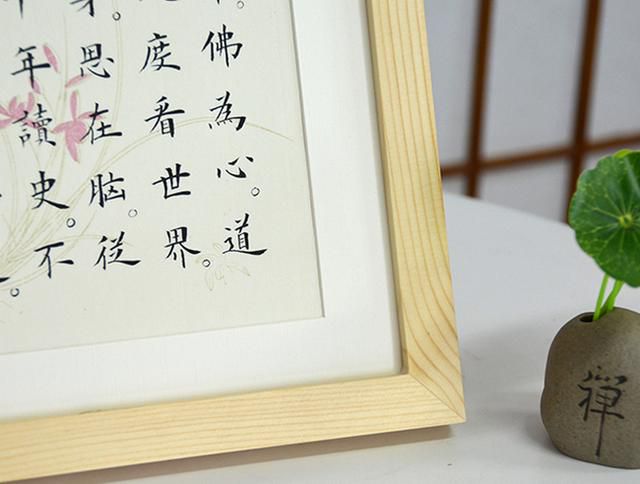 。佛為心。道
度看世界。
。思在脑。從
年讀史。不
。
禅